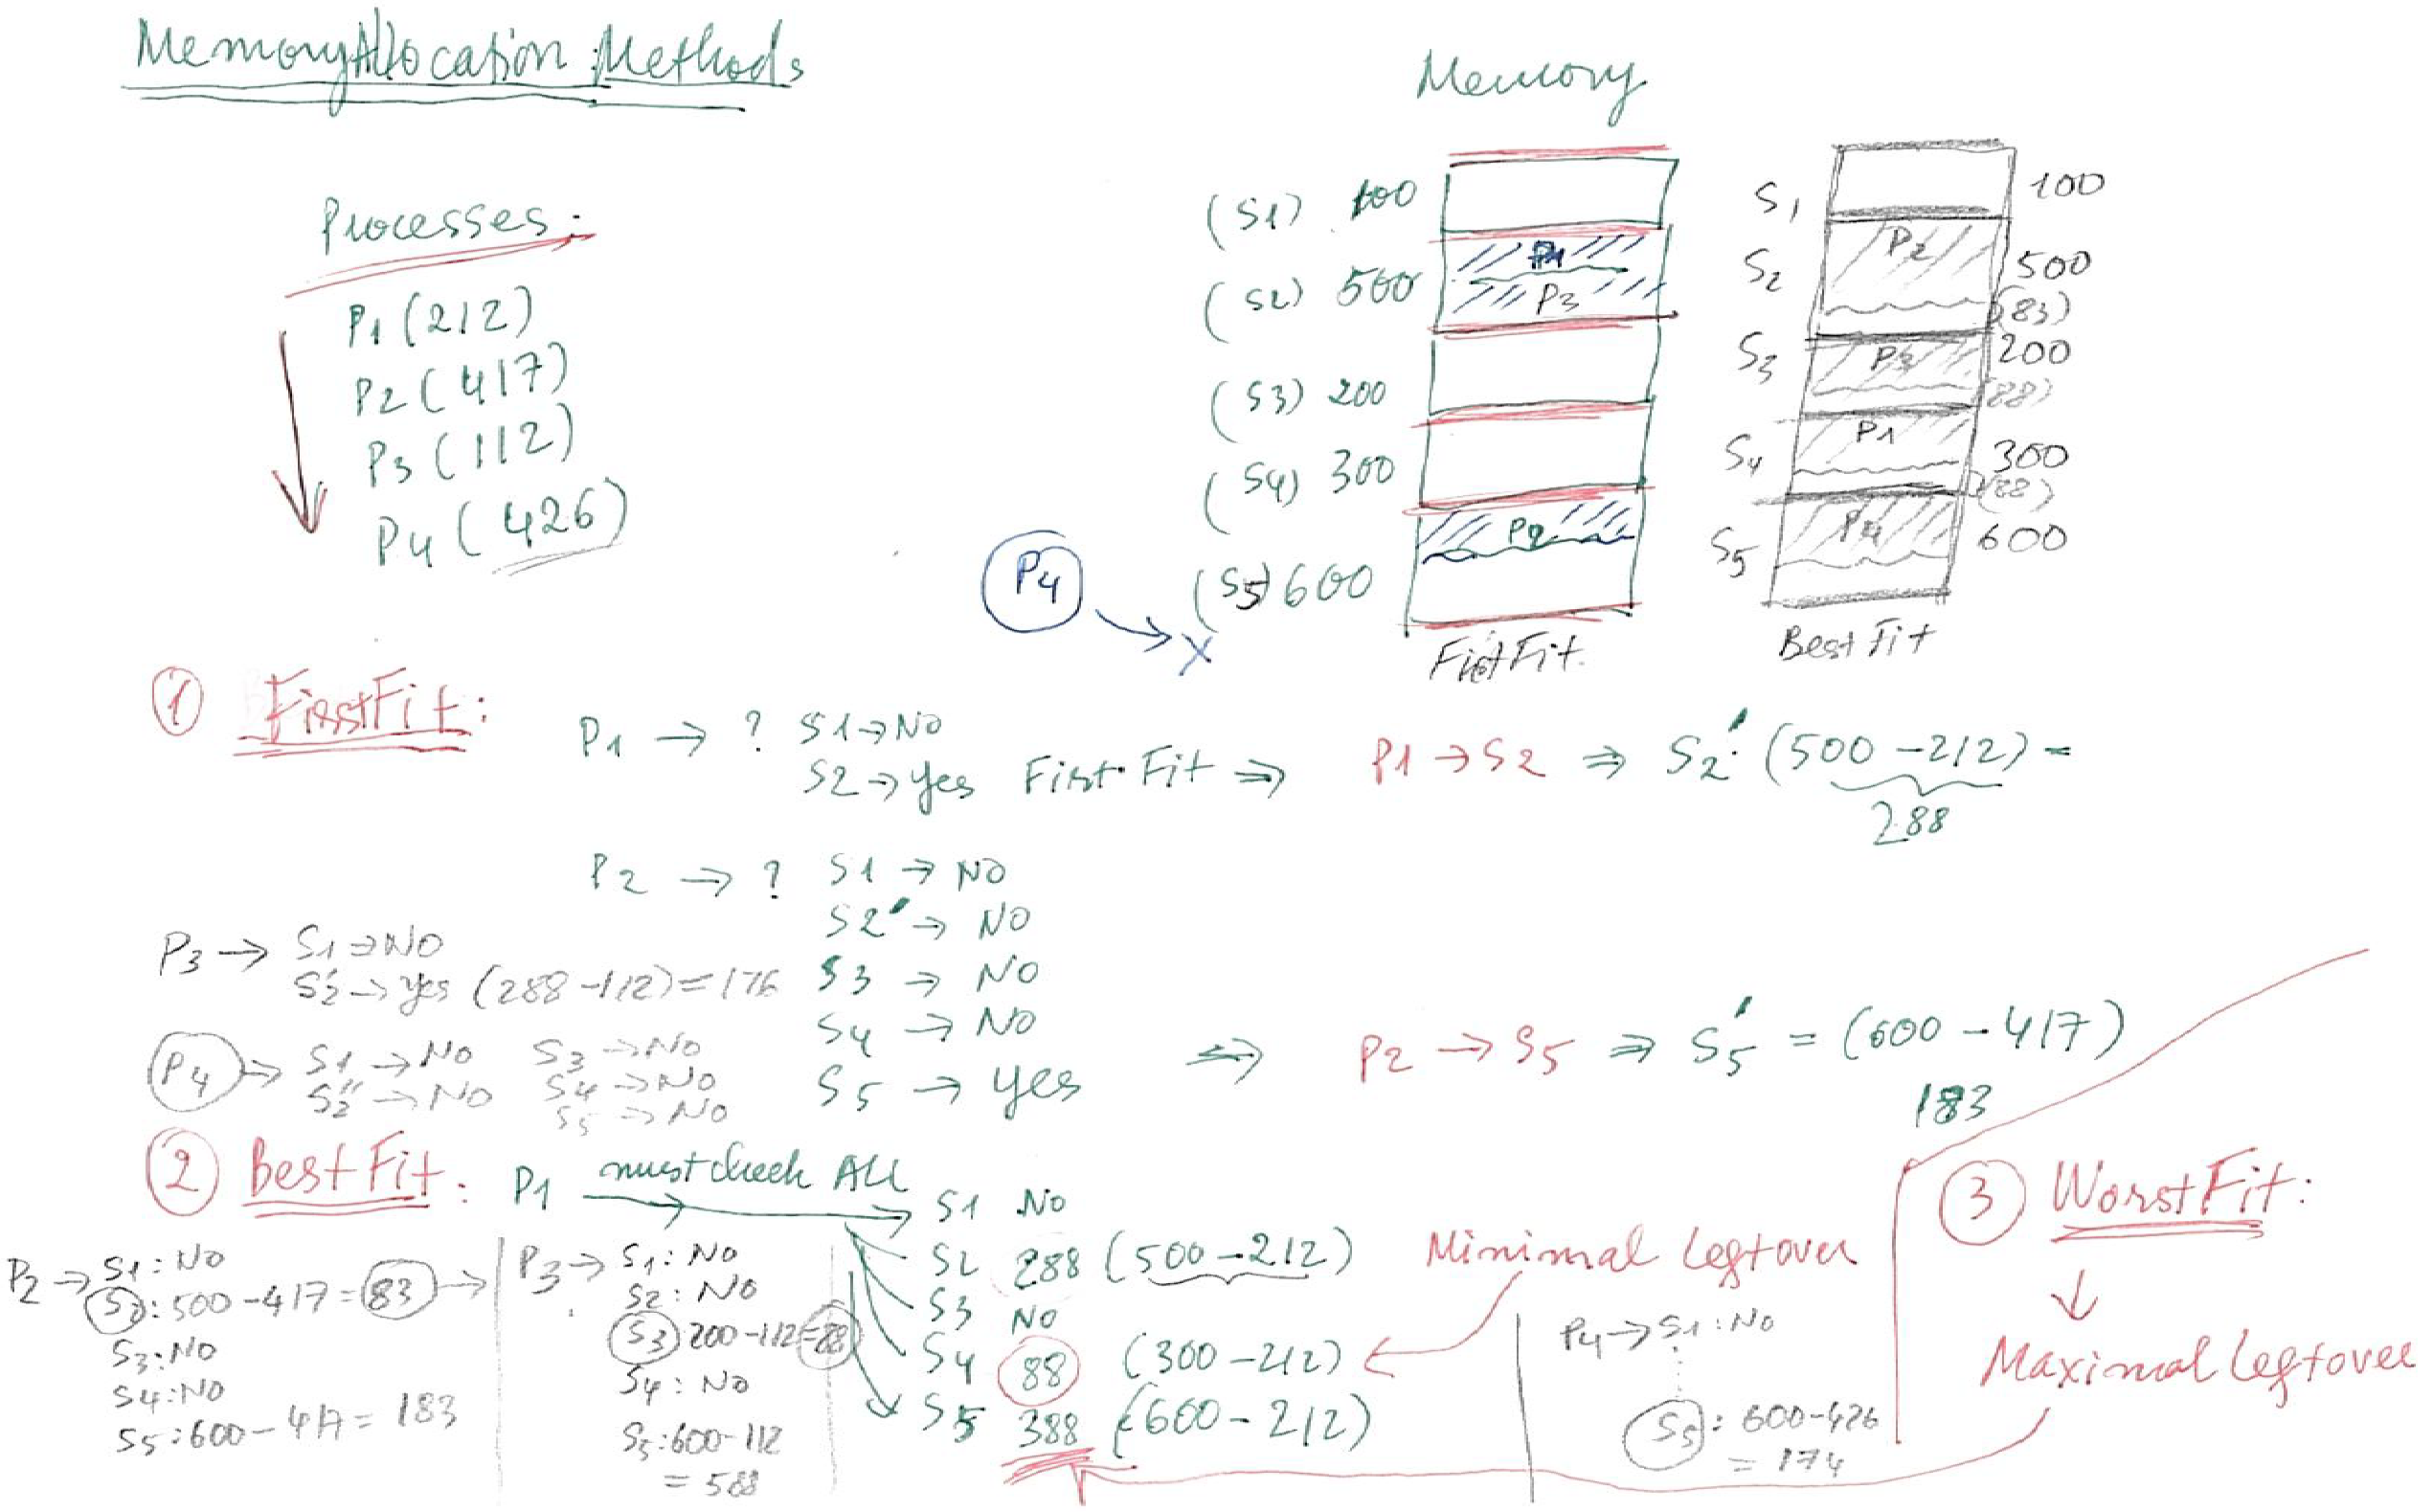 Memory Allocation Methods
Processes:
P1 (212)
P2 (417)
P3 (112)
P4 (426)
Memory
(S1) 100
(S2) 500
(S3) 200
(S4) 300
(S5) 600
P1
P3
P2
P4
X
FirstFit.
S1 100
S2 P2 500
(83)
S3 P3 200
(88)
S4 P1 300
(88)
S5 P4 600
Best Fit
1 FirstFit:
P1 → ? S1 → No
S2 → Yes First Fit ⇒ P1 → S2 ⇒ S2' (500 - 212) =
288
P2 → ? S1 → No
S2' → No
S3 → No
S4 → No
S5 → Yes ⇒ P2 → S5 ⇒ S5' = (600 - 417)
183
P3 → S1 → No
S2' → Yes (288 - 112) = 176
P4 → S1 → No S3 → No
S2'' → No S4 → No
S5 → No
2 Best Fit: P1 must check ALL
S1 No
S2 288 (500 - 212)
S3 No
S4 88 (300 - 212)
S5 388 (600 - 212)
Minimal Leftover
P2 → S1: No
S2: 500 - 417 = 83 →
S3: No
S4: No
S5: 600 - 417 = 183
P3 → S1: No
S2: No
S3 200 - 112 = 88
S4: No
S5: 600 - 112
= 588
P4 → S1: No
S5: 600 - 426
= 174
3 Worst Fit:
Maximal Leftover